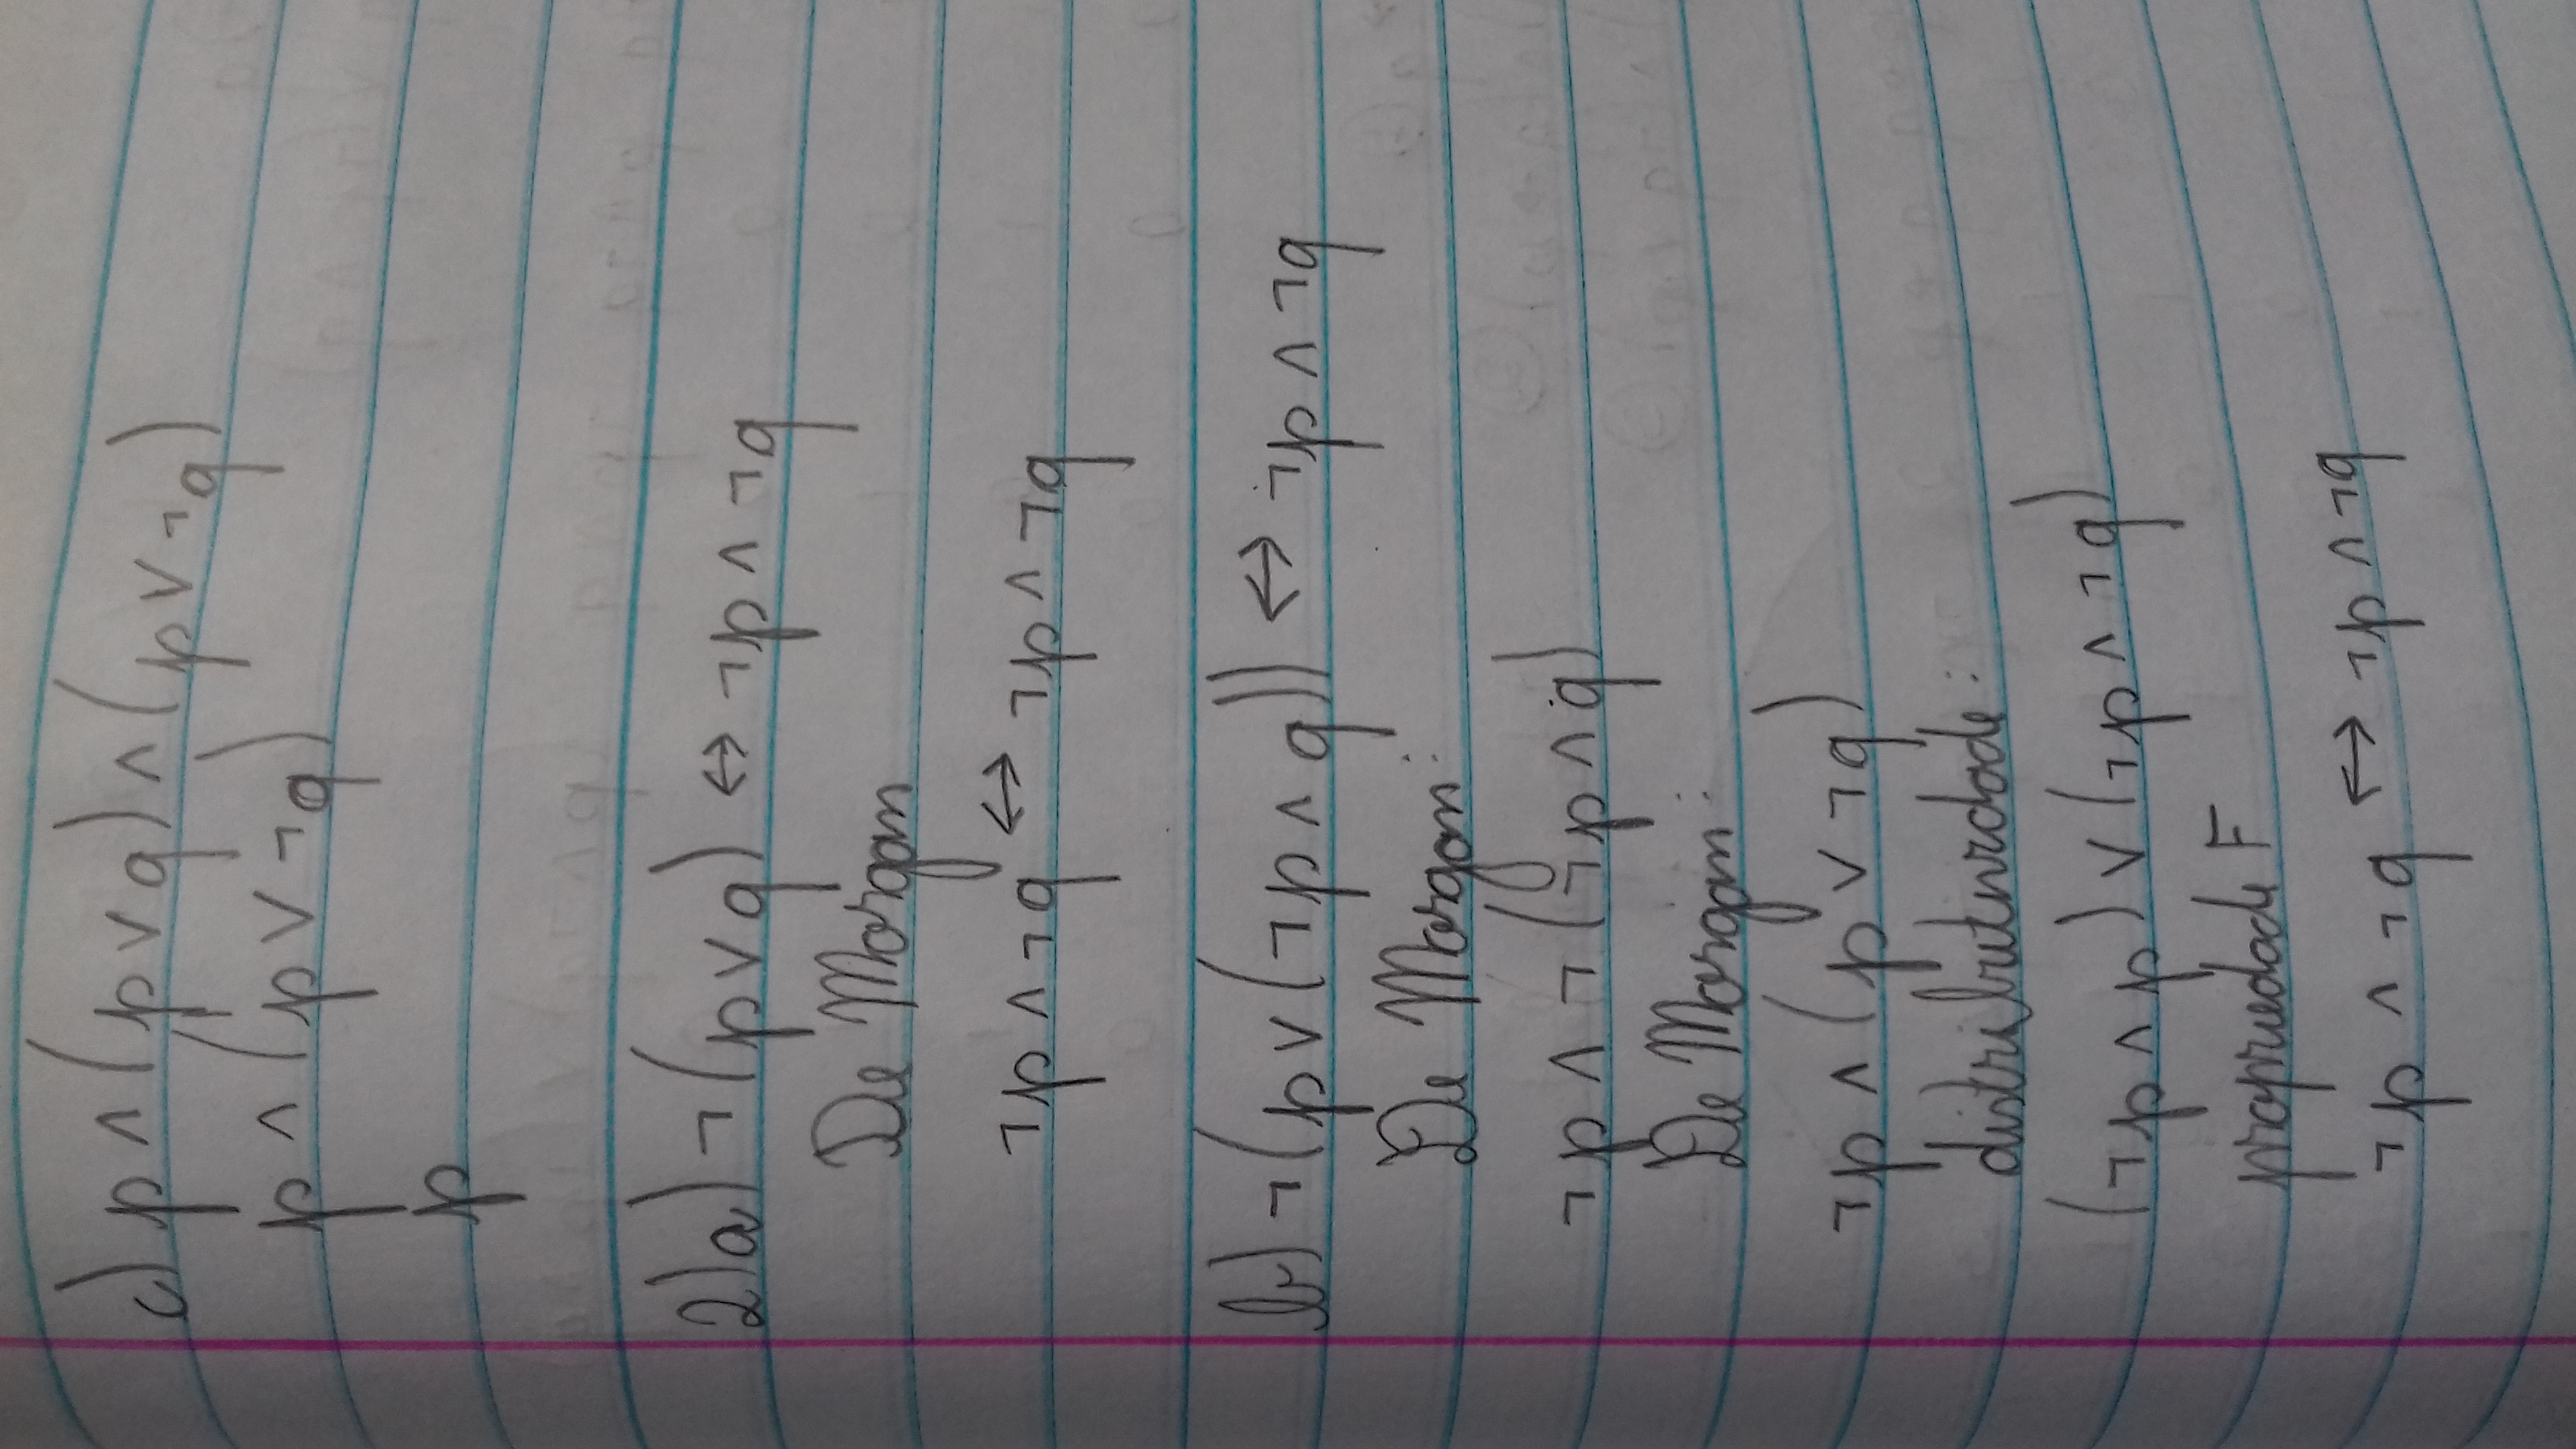 c) p ∧ (p ∨ q) ∧ (p ∨ ¬q)
p ∧ (p ∨ ¬q)
p
2) a) ¬(p ∨ q) ↔ ¬p ∧ ¬q
De Morgan
¬p ∧ ¬q ↔ ¬p ∧ ¬q
b) ¬(p ∨ (¬p ∧ q)) ↔ ¬p ∧ ¬q
De Morgan:
¬p ∧ ¬(¬p ∧ q)
De Morgan:
¬p ∧ (p ∨ ¬q)
distributividade:
(¬p ∧ p) ∨ (¬p ∧ ¬q)
propriedade F
¬p ∧ ¬q ↔ ¬p ∧ ¬q